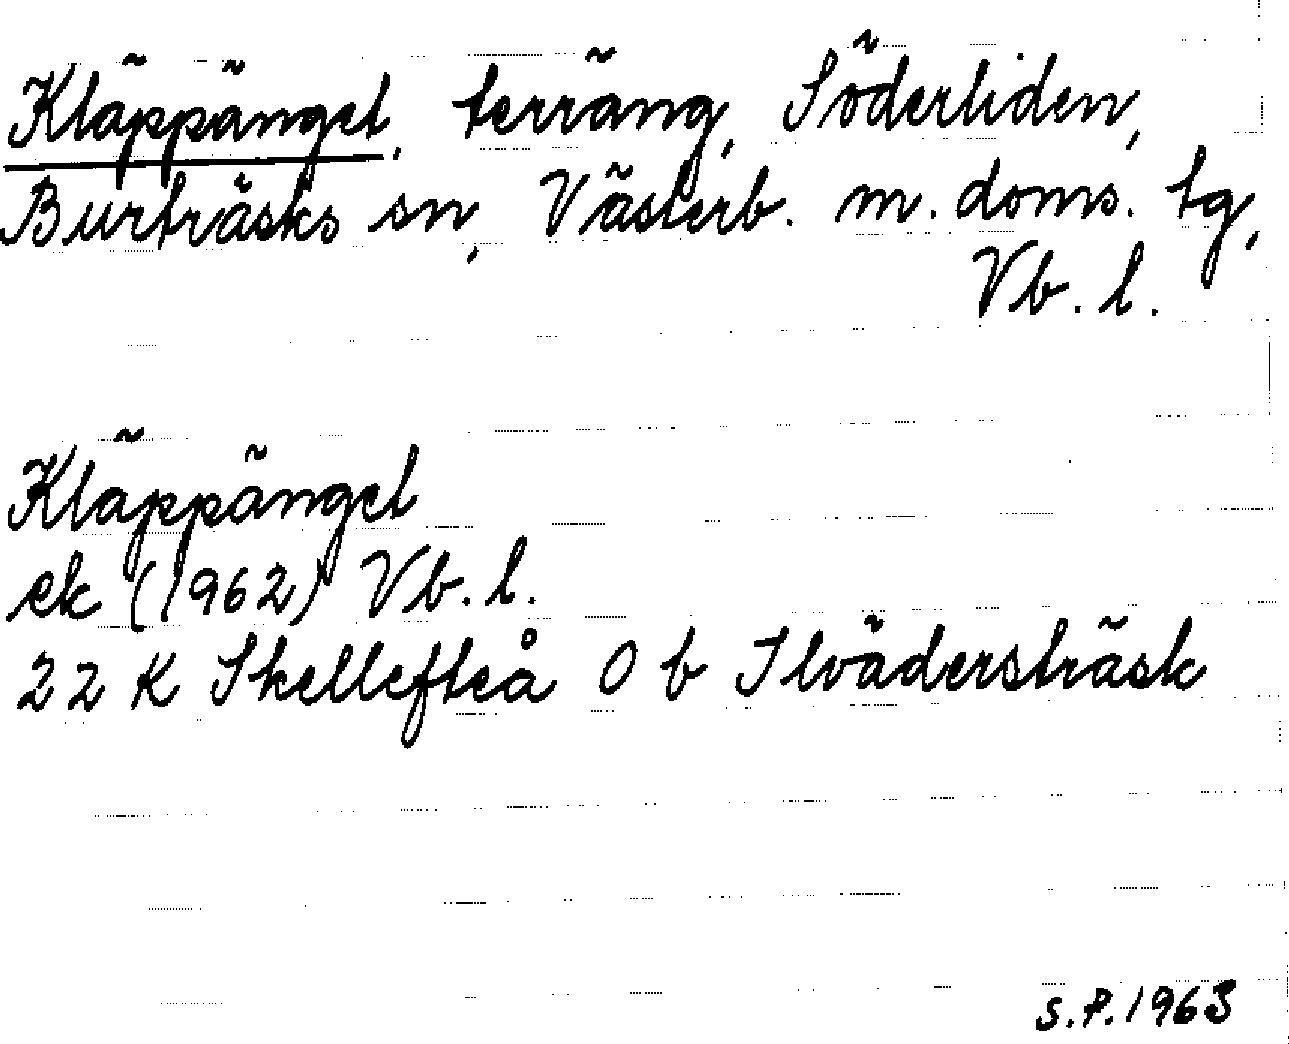 Kläppänget, terräng, Söderliden,
Burträsks sn, Västerb. m. doms. tg,
Vb. l.
Kläppänget
ek (1962) Vb. l.
22 K Skellefteå 0 b Ilvädersträsk
S.P. 1963